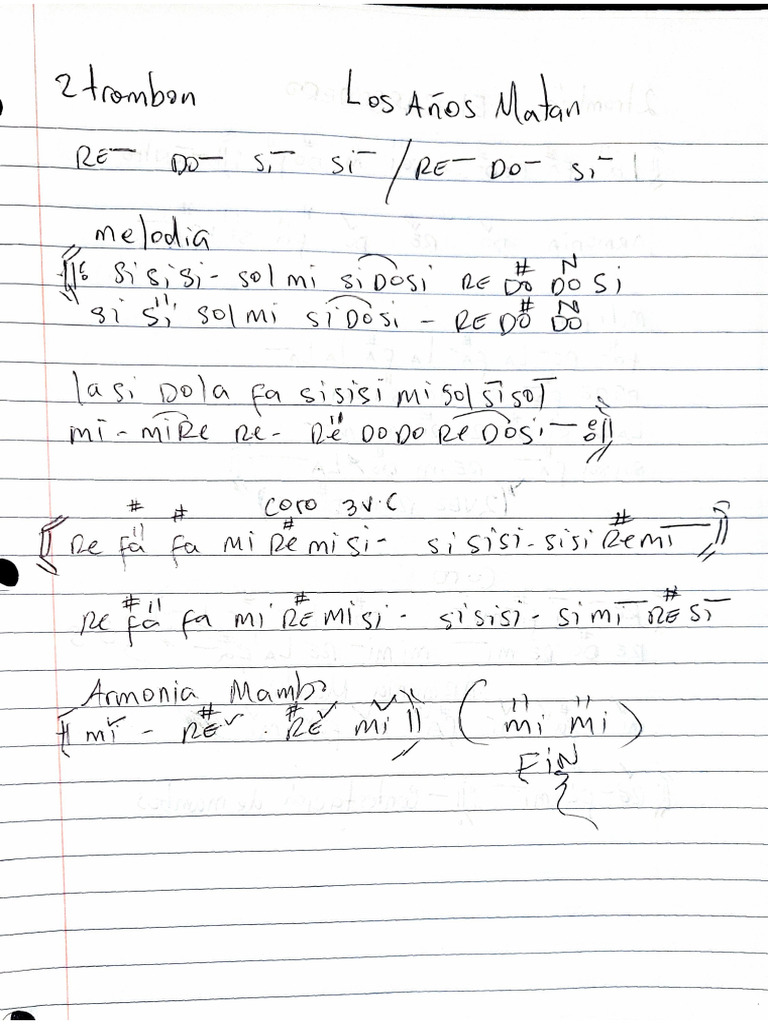 2 trombon Los Años Matan
RE— DO— Si— Si— / RE— DO— Si—
melodia
‖: Si Si Si - Sol mi Si DO Si RE DO# DO N Si
Si Si" Sol mi Si DO Si - RE DO# DO N
la si DO la fa si si si mi sol si sol
mi - mi Re Re - Re" DO DO Re DO Si — :‖
coro 3 V.C
[ Re fa#" fa# mi Re# mi si - si si si - si si Re# mi — ]
RE fa#" fa mi RE# mi si - si si si - si mi — RE# Si —
Armonia Mambo
‖ mi ✓ - RE# ✓ . RE# ✓ mi ✓ ‖ ( mi" mi" )
FiN